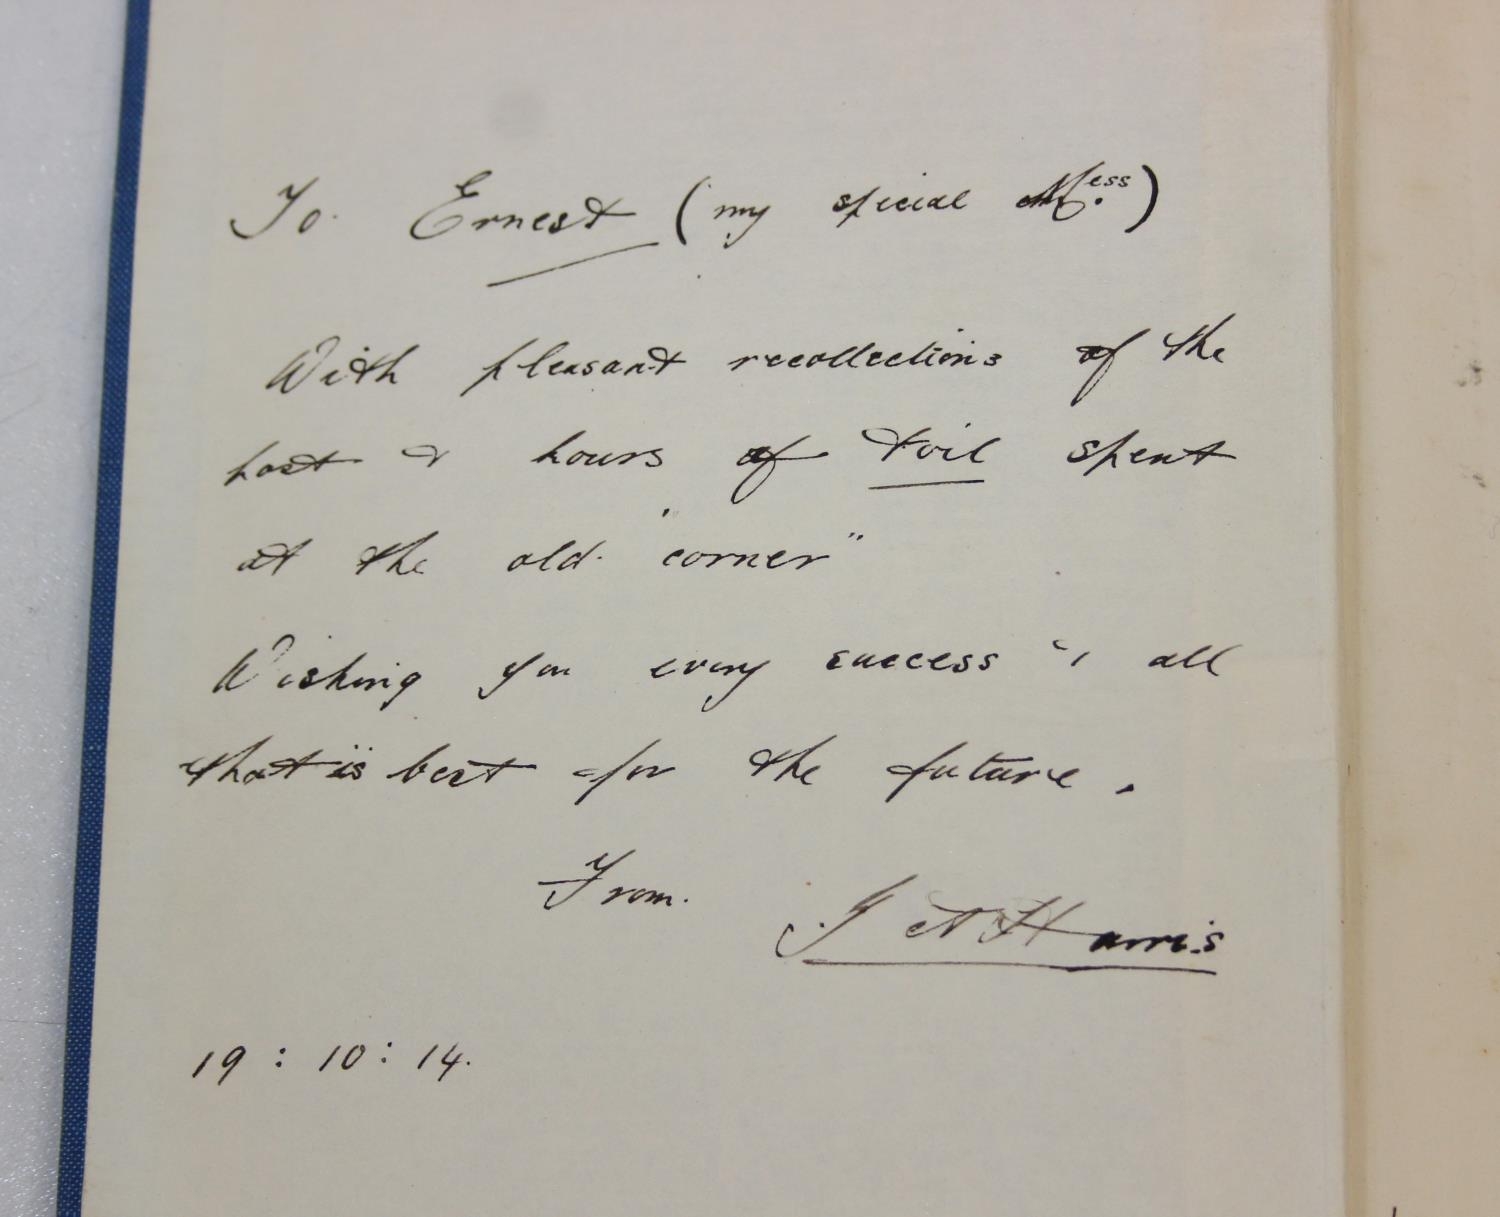 To Ernest (my special Mess.)
With pleasant recollections of the
past & hours of toil spent
at the old "corner"
Wishing you every success & all
that is best for the future.
From.
J A Harris
19 : 10 : 14.